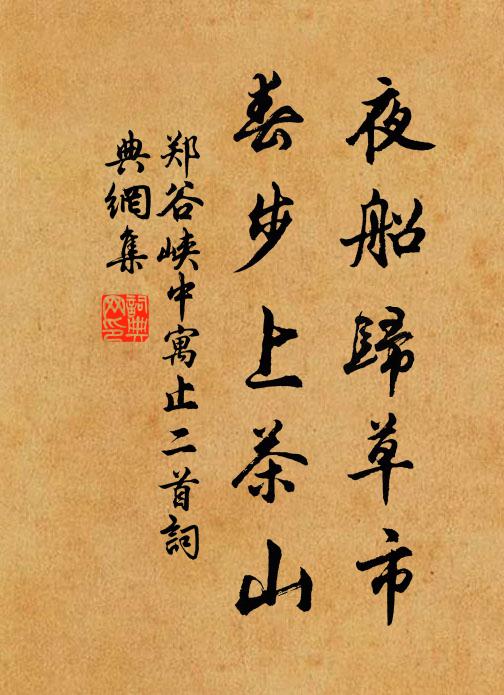 夜船歸草市
春步上茶山
郑谷峡中寓止二首詞
典網集
詞典
网印